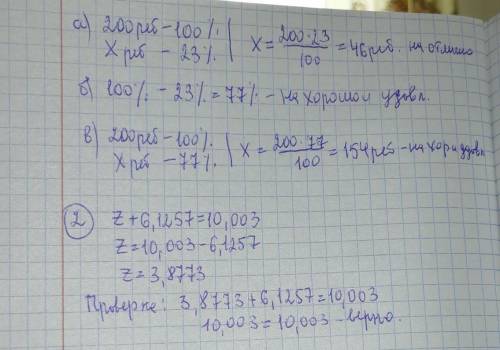 а) 200 реб – 100%
X реб – 23%
X = 200·23 / 100 = 46 реб. на отлично
б) 100% – 23% = 77% – на хорошо и удовл.
в) 200 реб – 100%
X реб – 77%
X = 200·77 / 100 = 154 реб – на хор и удовл
2 z + 6,1257 = 10,003
z = 10,003 – 6,1257
z = 3,8773
Проверка: 3,8773 + 6,1257 = 10,003
10,003 = 10,003 – верно.